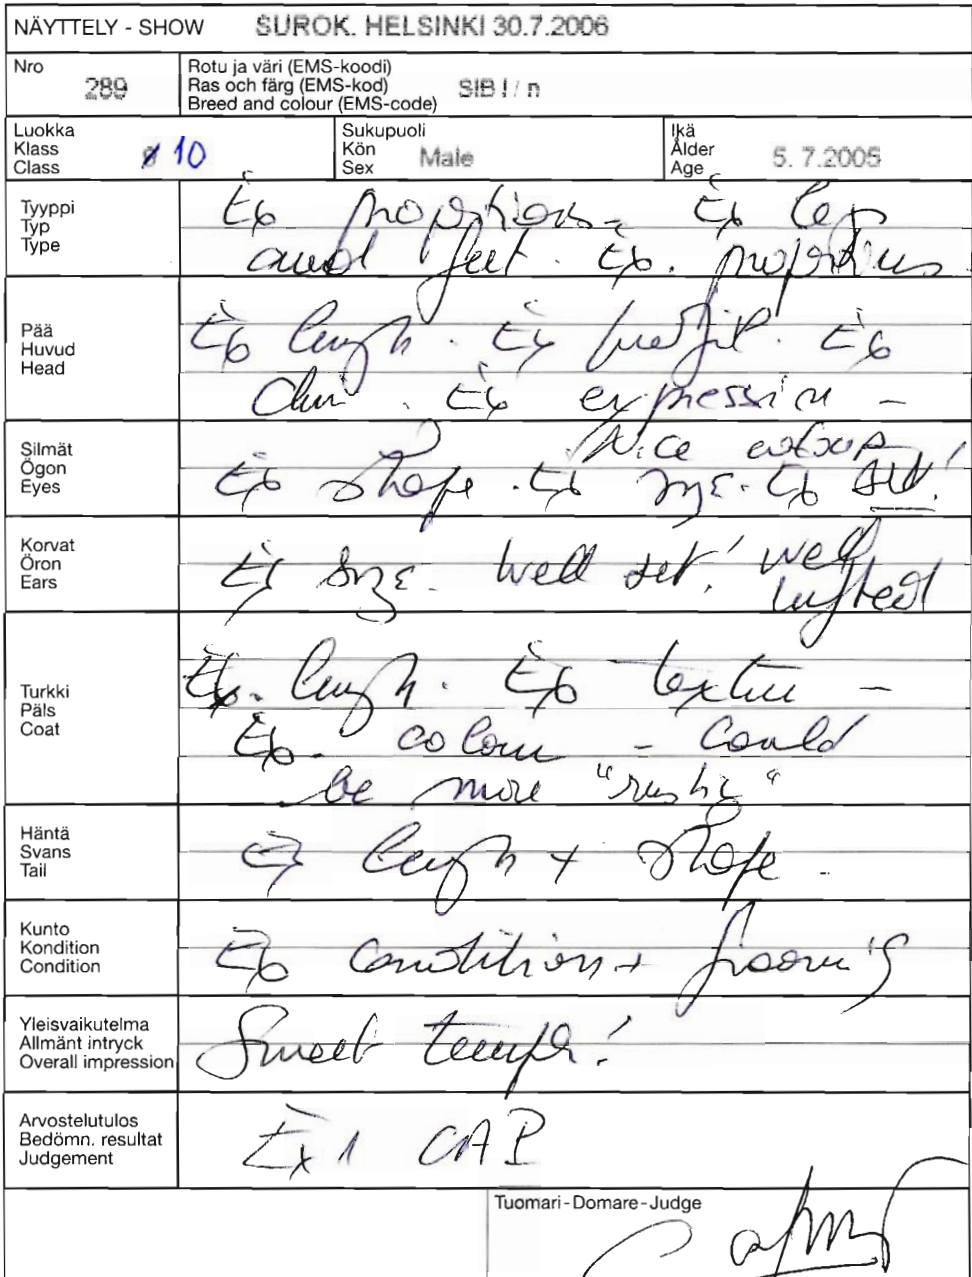 NÄYTTELY - SHOW SUROK. HELSINKI 30.7.2006
Nro
289
Rotu ja väri (EMS-koodi)
Ras och färg (EMS-kod)
Breed and colour (EMS-code) SIB I / n
Luokka
Klass
Class
10
Sukupuoli
Kön
Sex
Male
Ikä
Ålder
Age
5. 7.2005
Tyyppi
Typ
Type
Ex proportions - Ex legs
and feet. Ex. proportions
Pää
Huvud
Head
Ex length. Ex profil. Ex
chin. Ex expression -
Silmät
Ögon
Eyes
Nice colour!
Ex shape. Ex size. Ex set!
Korvat
Öron
Ears
Ex size. Well set! well
tufted
Turkki
Päls
Coat
Ex. length. Ex texture -
Ex. colour - Could
be more "rustic"
Häntä
Svans
Tail
Ex length + shape -
Kunto
Kondition
Condition
Ex condition + grooming
Yleisvaikutelma
Allmänt intryck
Overall impression
Sweet temper!
Arvostelutulos
Bedömn. resultat
Judgement
Ex 1 CAPI
Tuomari-Domare-Judge